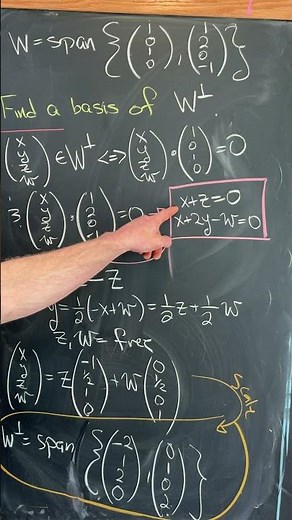 W = span { (1 0 1 0), (1 2 0 -1) }
Find a basis of W⊥
(x y z w) ∈ W⊥ <=> (x y z w) • (1 0 1 0) = 0
(x y z w) • (1 2 0 -1) = 0
x+z=0
x+2y-w=0
-z
y = 1/2 (-x+w) = 1/2 z + 1/2 w
z, w = free
(x y z w) = z (-1 1/2 1 0) + w (0 1/2 0 1)
scale
W⊥ = span { (-2 1 2 0), (0 1 0 2) }